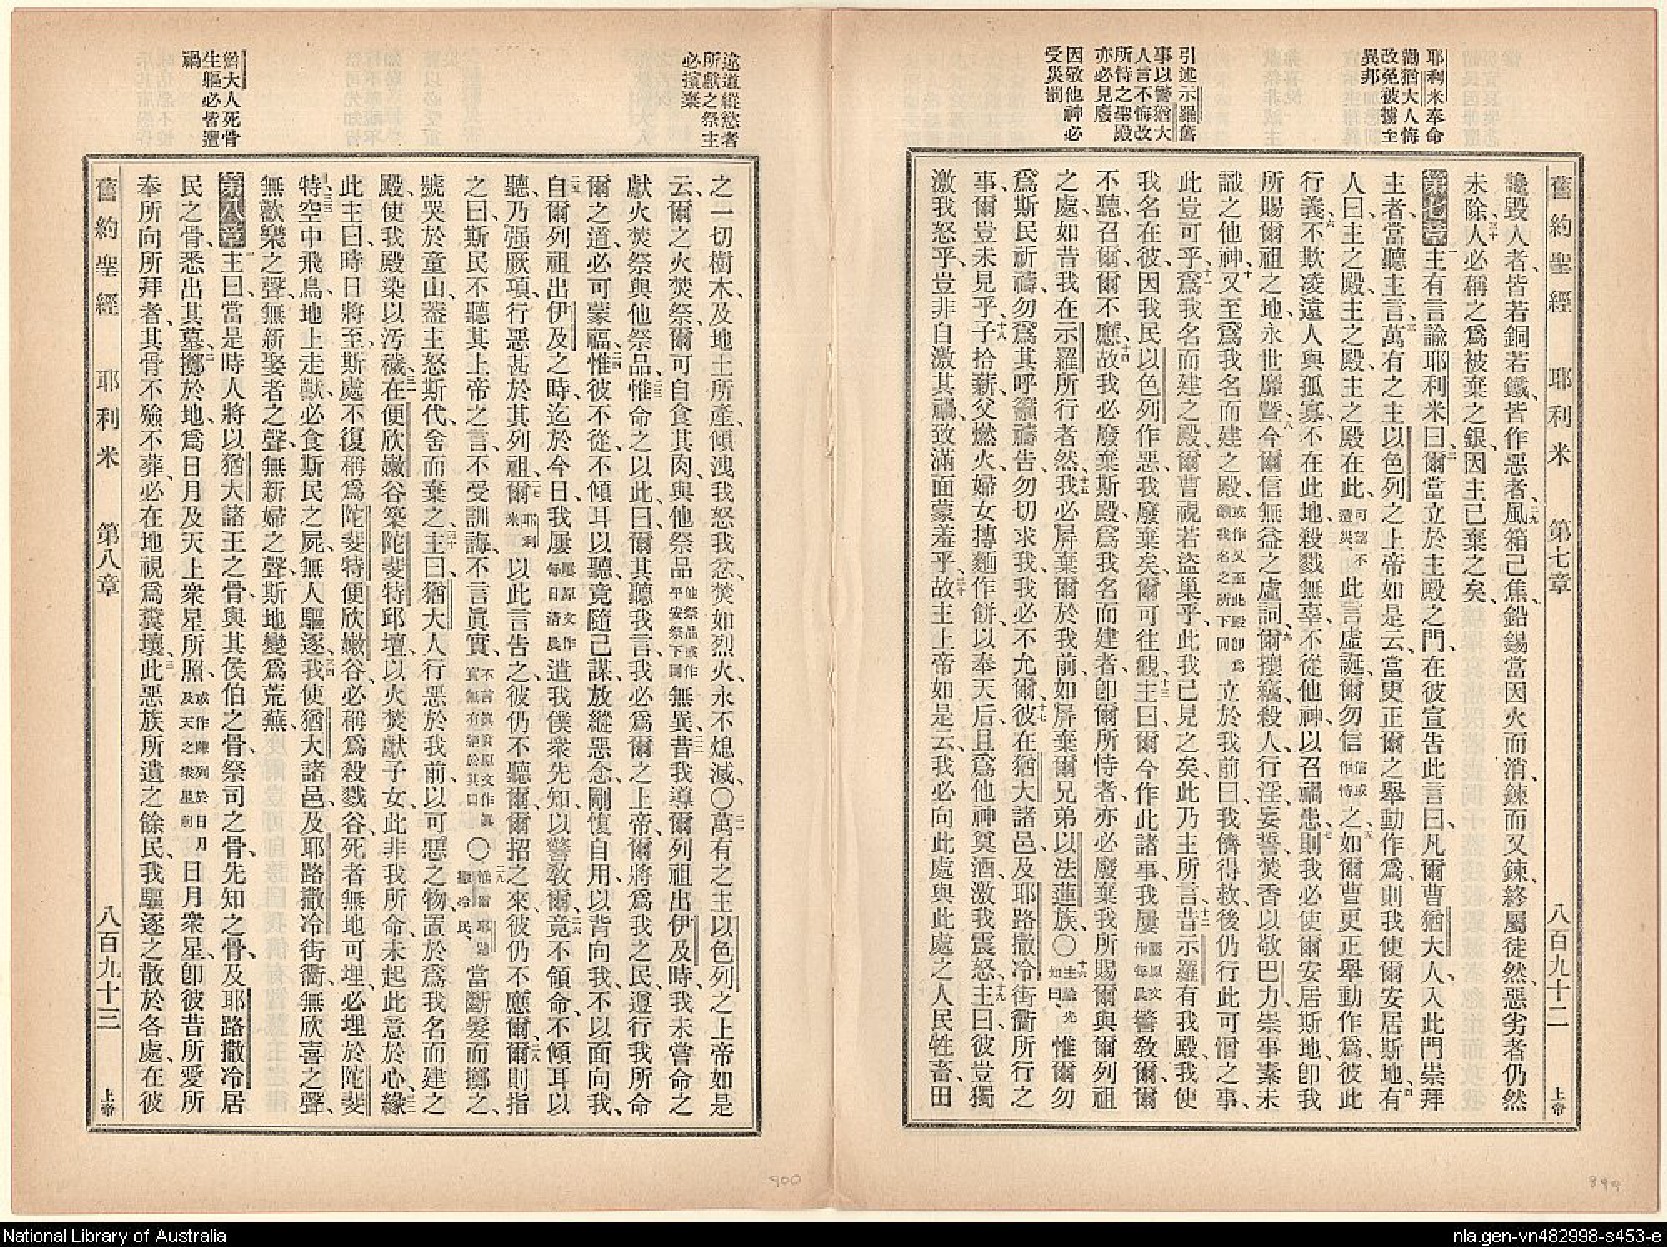 耶利米奉命
勸猶大人悔
改免被擄至
異邦
引述示羅舊
事以警猶大
人言不悔改
所恃之聖殿
亦必見廢
因敬他神必
受災罰
舊約聖經 耶利米 第七章 八百九十二 上帝
讒毀人者、皆若銅若鐵、皆作惡者、二九風箱已焦、鉛錫當因火而消、鍊而又鍊、終屬徒然、惡劣者仍然
未除、三十人必稱之爲被棄之銀、因主已棄之矣、
第七章 一主有言諭耶利米曰、二爾當立於主殿之門、在彼宣告此言曰、凡爾曹猶大人、入此門崇拜
主者、當聽主言、三萬有之主以色列之上帝如是云、當更正爾之舉動作爲、則我使爾安居斯地、四有
人曰、主之殿、主之殿、主之殿在此、可認不遭災、此言虛誕、爾勿信信或作恃之、五如爾曹更正舉動作爲、彼此
行義、六不欺凌遠人與孤寡、不在此地殺戮無辜、不從他神、以召禍患、七則我必使爾安居斯地、卽我
所賜爾祖之地、永世靡曁、八今爾信無益之虛詞、九爾攘竊、殺人、行淫、妄誓、焚香以敬巴力、崇事素未
識之他神、十又至爲我名而建之殿、或作又至此殿卽爲籲我名之所下同立於我前曰、我儕得救、後仍行此可憎之事、
此豈可乎、十一爲我名而建之殿、爾曹視若盜巢乎、此我已見之矣、此乃主所言、十二昔示羅有我殿、我使
我名在彼、因我民以色列作惡、我廢棄矣、爾可往觀、十三主曰、爾今作此諸事、我屢屢原文作每晨警敎爾、爾
不聽、召爾、爾不應、十四故我必廢棄斯殿、爲我名而建者、卽爾所恃者、亦必廢棄我所賜爾與爾列祖
之處、如昔我在示羅所行者然、十五我必屛棄爾於我前、如屛棄爾兄弟以法蓮族、〇十六主諭先知曰、惟爾勿
爲斯民祈禱、勿爲其呼籲禱告、勿切求我、我必不允爾、十七彼在猶大諸邑及耶路撒冷街衢所行之
事、爾豈未見乎、十八子拾薪、父燃火、婦女摶麵作餅、以奉天后、且爲他神奠酒、激我震怒、十九主曰、彼豈獨
激我怒乎、豈非自激其禍、致滿面蒙羞乎、二十故主上帝如是云、我必向此處與此處之人民牲畜田
違道縱慾者
所獻之祭主
必擯棄
猶大人死骨
生軀必皆遭
禍
之一切樹木、及地土所產、傾洩我怒我忿、焚如烈火、永不熄滅、〇二一萬有之主以色列之上帝如是
云、爾之火焚祭、爾可自食其肉、與他祭品他祭品或作平安祭下同無異、二二昔我導爾列祖出伊及時、我未嘗命之
獻火焚祭與他祭品、二三惟命之以此曰、爾其聽我言、我必爲爾之上帝、爾將爲我之民、遵行我所命
爾之道、必可蒙福、二四惟彼不從、不傾耳以聽、竟隨己謀、放縱惡念、剛愎自用、以背向我、不以面向我、
二五自爾列祖出伊及之時、迄於今日、我屢屢原文作每日淸晨遣我僕衆先知、以警敎爾、二六竟不領命、不傾耳以
聽、乃强厥項、行惡甚於其列祖、二七爾耶利米以此言告之、彼仍不聽爾、爾招之來、彼仍不應爾、二八爾則指
之曰、斯民不聽其上帝之言、不受訓誨、不言眞實、不言眞實原文作眞實無有絕於其口〇二九惟爾耶路撒冷民、當斷髮而擲之、
號哭於童山、蓋主怒斯代、舍而棄之、三十主曰、猶大人行惡於我前、以可惡之物、置於爲我名而建之
殿、使我殿染以汚穢、三一在便欣嫩谷築陀斐特邱壇、以火焚獻子女、此非我所命、未起此意於心、三二緣
此主曰、時日將至、斯處不復稱爲陀斐特便欣嫩谷、必稱爲殺戮谷、死者無地可埋、必埋於陀斐
特、三三空中飛鳥、地上走獸、必食斯民之屍、無人驅逐、三四我使猶大諸邑及耶路撒冷街衢、無欣喜之聲、
無歡樂之聲、無新娶者之聲、無新婦之聲、斯地變爲荒蕪、
第八章 一主曰、當是時人將以猶大諸王之骨、與其侯伯之骨、祭司之骨、先知之骨、及耶路撒冷居
民之骨、悉出其墓、二擲於地、爲日月及天上衆星所照、或作陳列於日月及天之衆星前日月衆星、卽彼昔所愛所
奉所向所拜者、其骨不殮不葬、必在地視爲糞壤、三此惡族所遺之餘民、我驅逐之散於各處、在彼
舊約聖經 耶利米 第八章 八百九十三 上帝
900
899
National Library of Australia
nla.gen-vn482998-s453-e